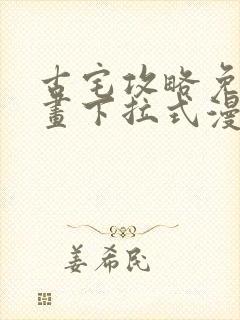 古宅攻略免
畫下拉式漫
姜希民